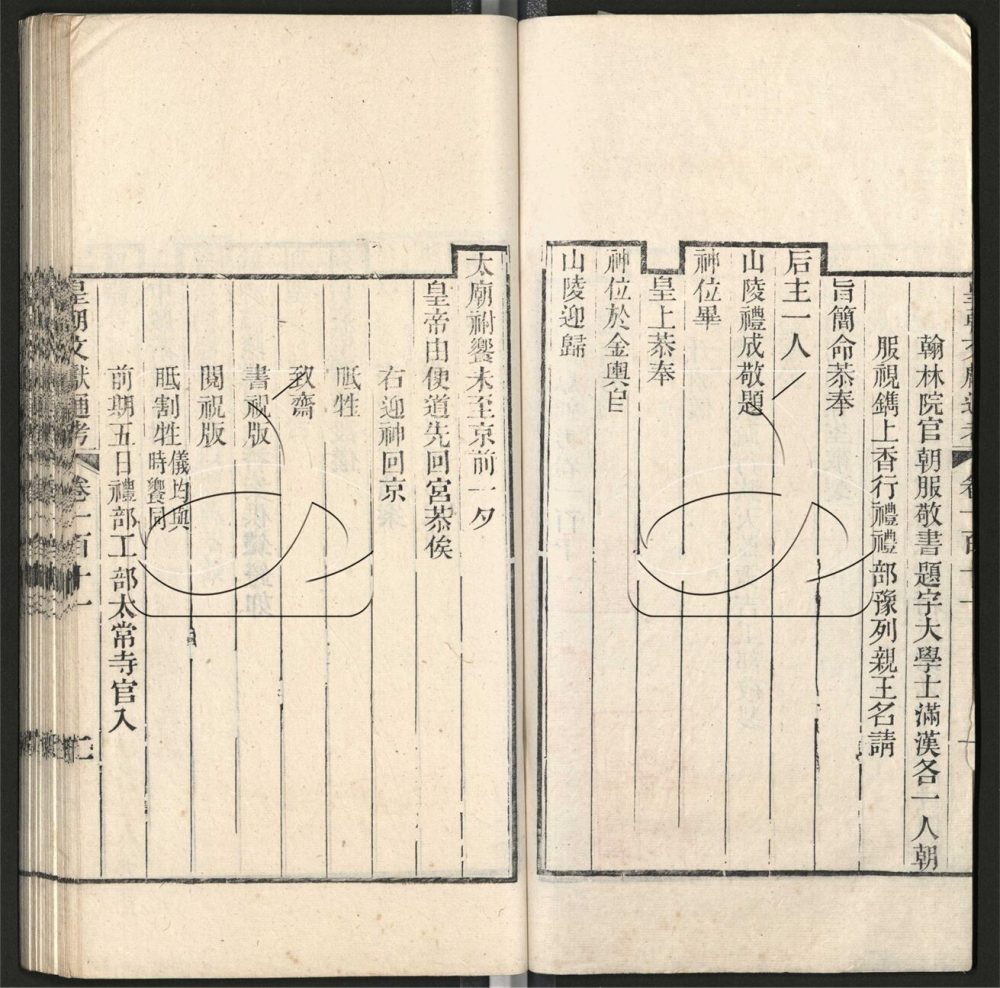 皇朝文獻通考 卷一百十一
翰林院官朝服敬書題字大學士滿漢各一人朝
服視鐫上香行禮禮部豫列親王名請
旨簡命恭奉
后主一人
山陵禮成敬題
神位畢
皇上恭奉
神位於金輿自
山陵迎歸
太廟祔饗未至京前一夕
皇帝由便道先回宮恭俟
右迎神回京
眡牲
致齋
書祝版
閱祝版
眡割牲儀均與時饗同
前期五日禮部工部太常寺官入
皇朝文獻通考 卷一百十一 二